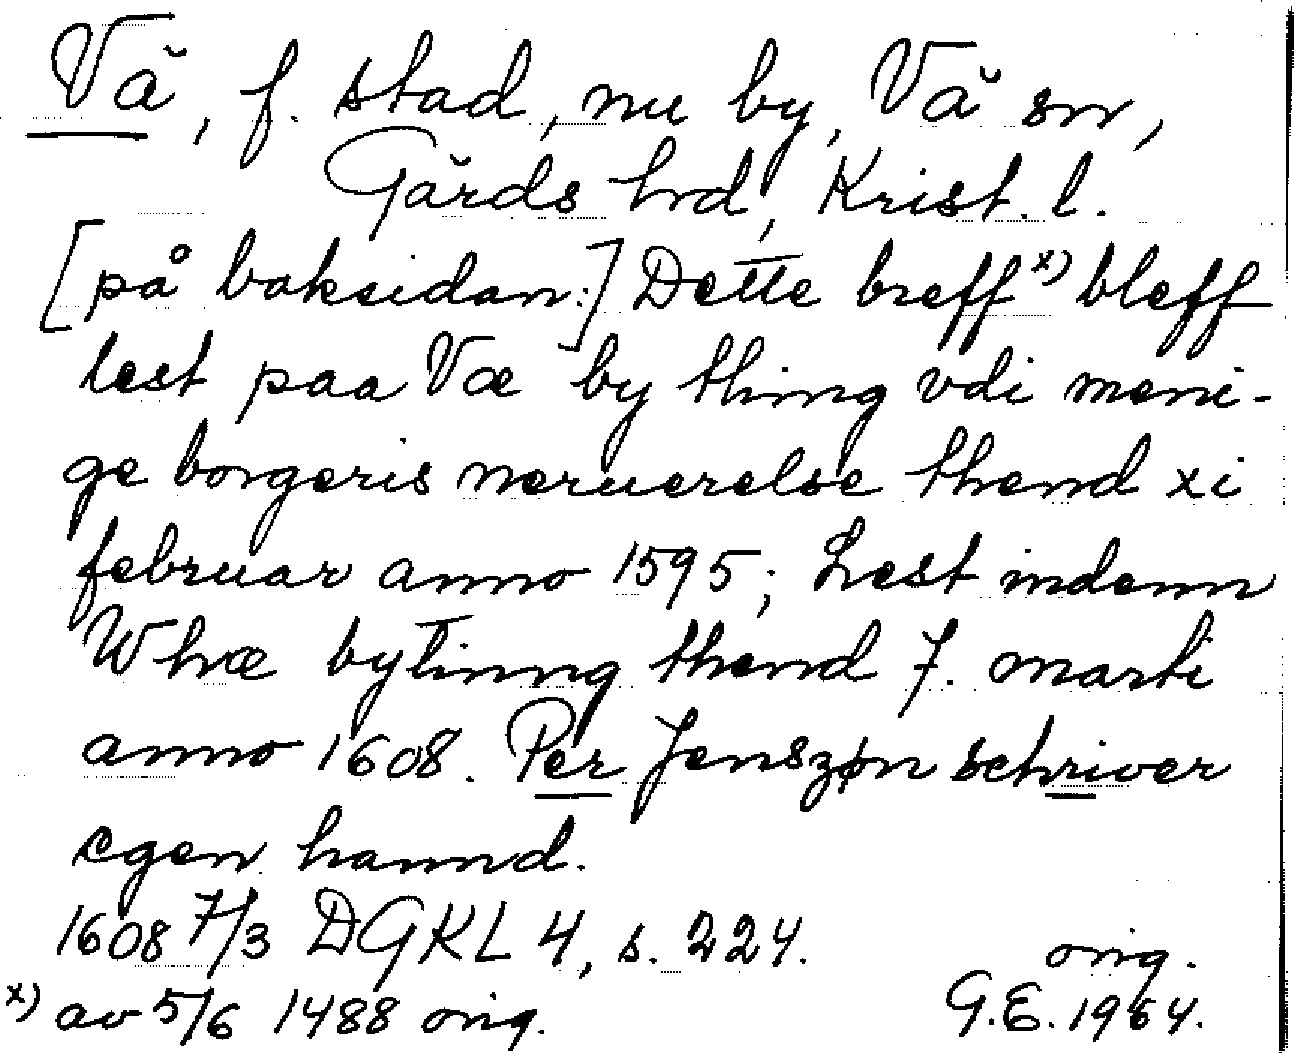 Vå, f. stad, nu by, Vå sn,
Gärds hrd, Krist. l.
[på baksidan:] Dette breff x) bleff
lest paa Væ by thing vdi meni-
ge borgeris neruerelse thend xi
februar anno 1595; Lest indenn
Whæ bytinng thend 7. marti
anno 1608. Per Jenszøn schriver
egen hannd.
1608 7/3 DGKL 4, s. 224. orig.
x) av 5/6 1488 orig. G.E. 1964.